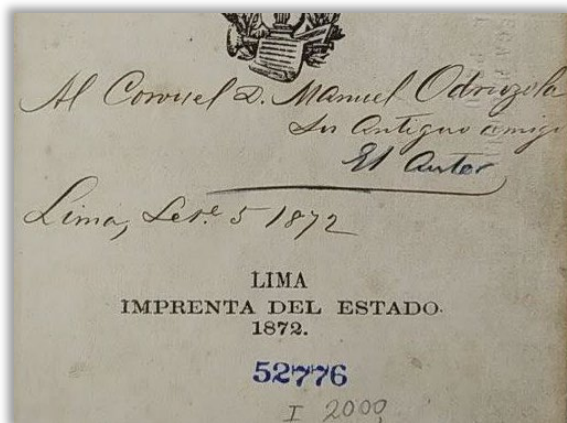 Al Coronel D. Manuel Odriozola
Su antiguo amigo
El Autor
Lima, Set.e 5 1872
LIMA
IMPRENTA DEL ESTADO.
1872.
52776
I 2000